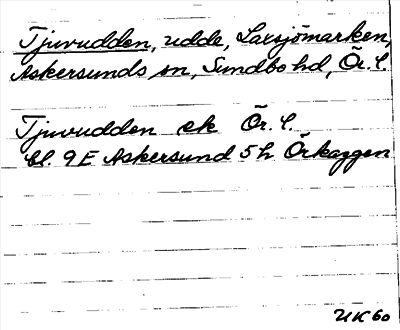 Tjuvudden, udde, Laxsjömarken,
Askersunds sn, Sundbo hd, Ör. l.
Tjuvudden ek Ör. l.
bl. 9E Askersund 5h Örkaggen
UK60